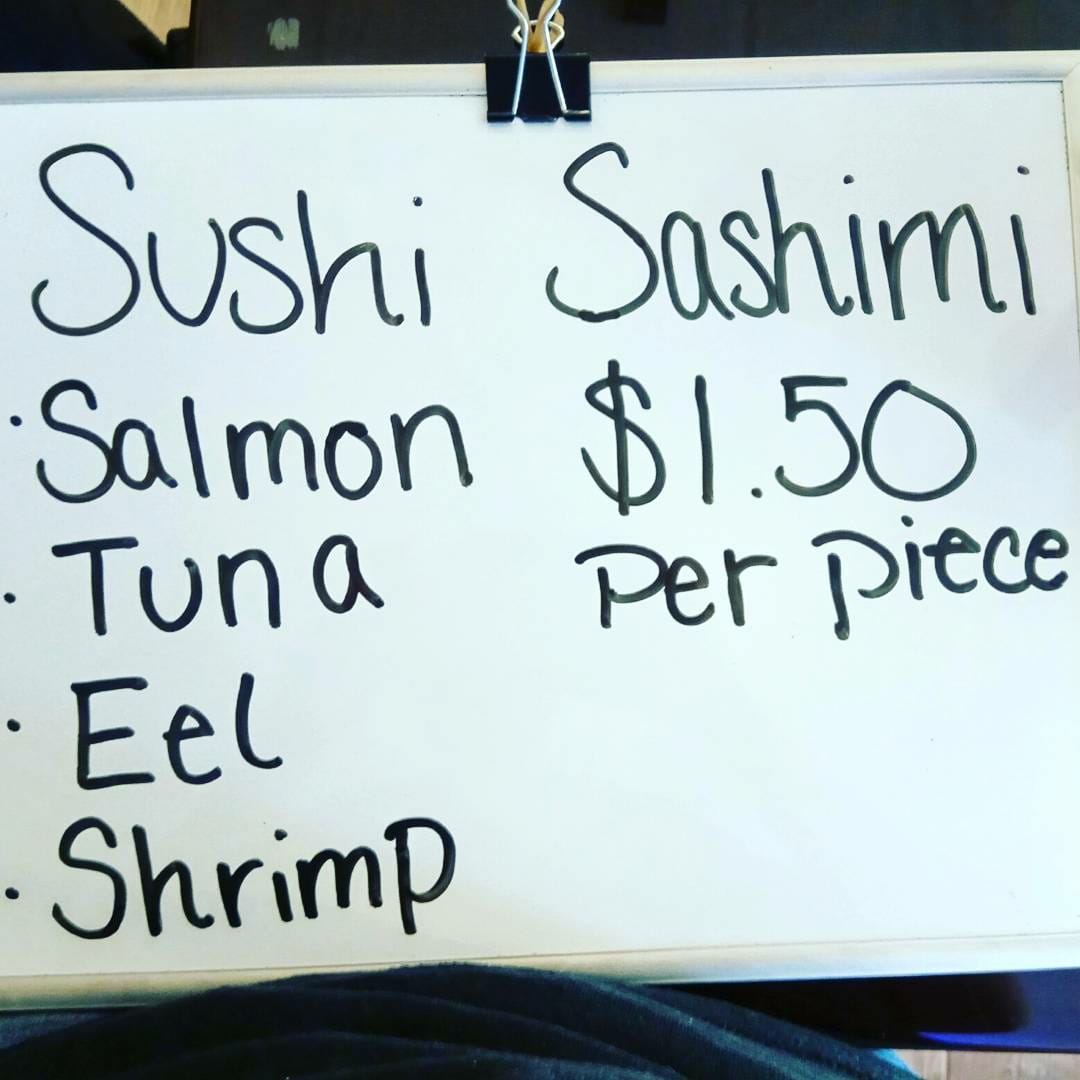 Sushi Sashimi
· Salmon $1.50
· Tuna per piece
· Eel
· Shrimp